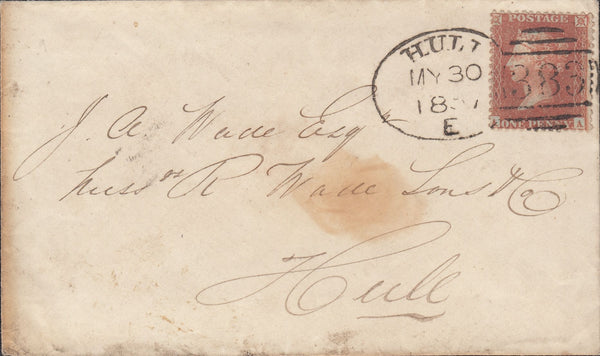 HULL
MY 30
18 7
E
POSTAGE
383
ONE PENNY
A
J. A. Wade Esqr
Messrs R Wade Sons & Co
Hull